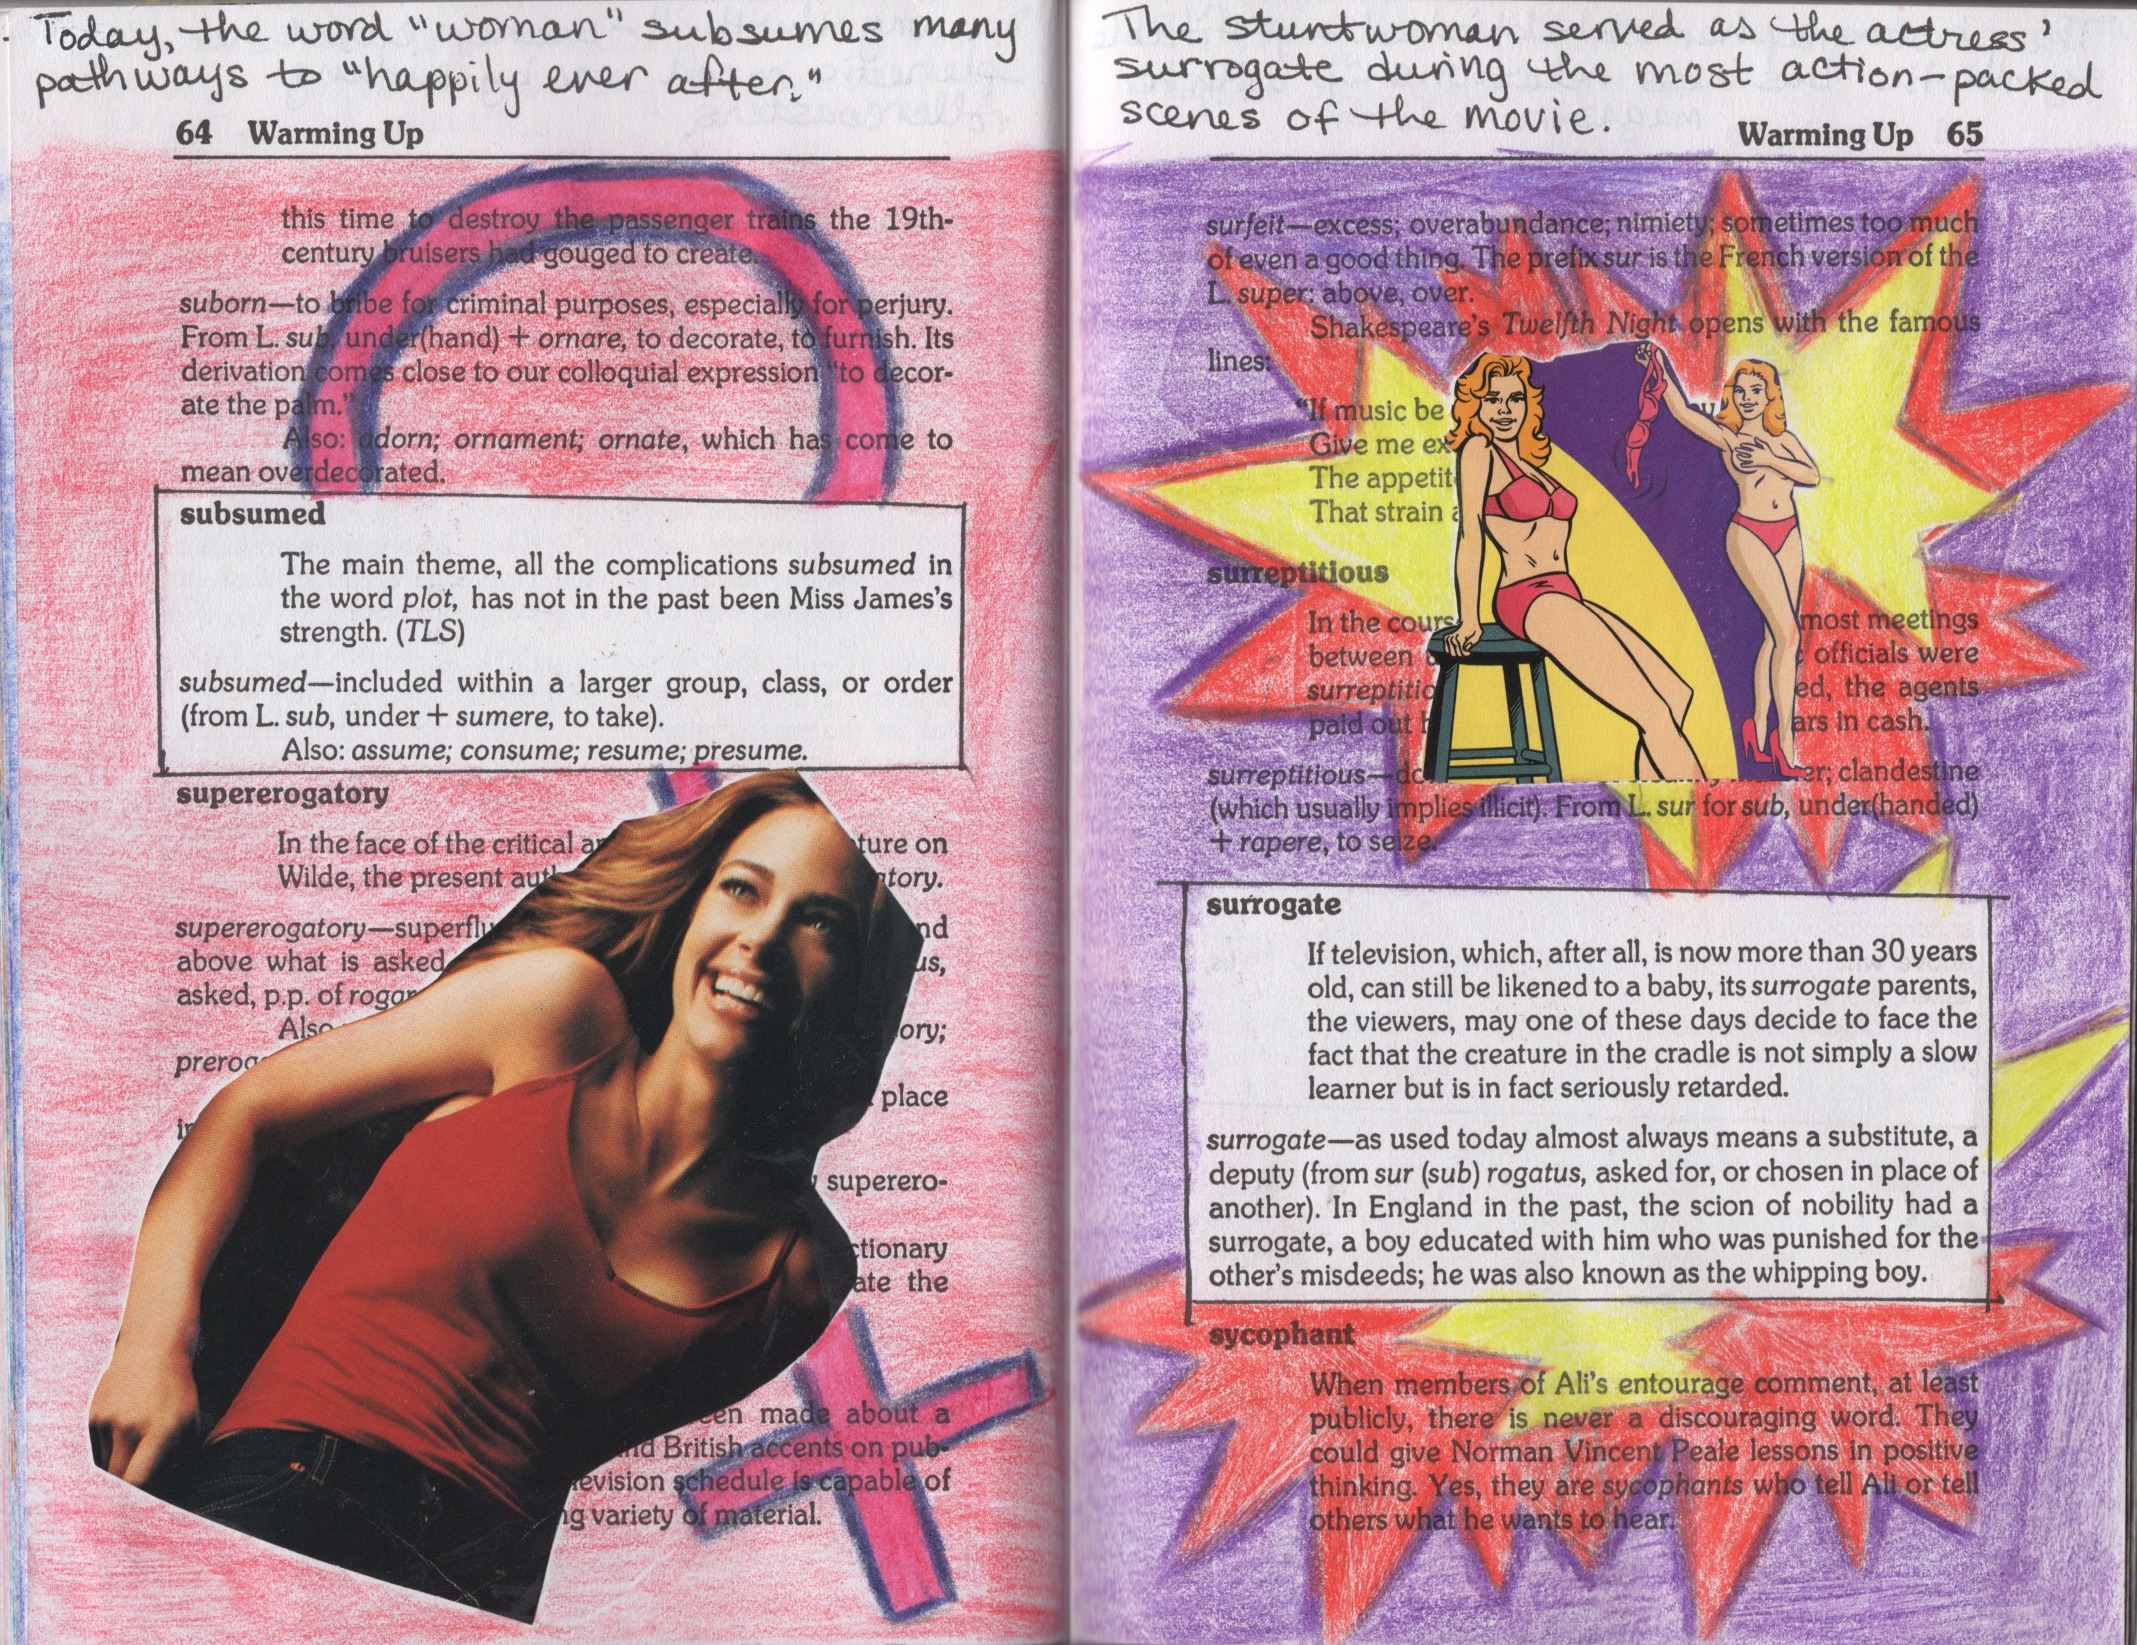 Today, the word "woman" subsumes many
pathways to "happily ever after."
64 Warming Up
this time to destroy the passenger trains the 19th-
century bruisers had gouged to create.
suborn—to bribe for criminal purposes, especially for perjury.
From L. sub, under(hand) + ornare, to decorate, to furnish. Its
derivation comes close to our colloquial expression "to decor-
ate the palm."
Also: adorn; ornament; ornate, which has come to
mean overdecorated.
subsumed
The main theme, all the complications subsumed in
the word plot, has not in the past been Miss James's
strength. (TLS)
subsumed—included within a larger group, class, or order
(from L. sub, under + sumere, to take).
Also: assume; consume; resume; presume.
supererogatory
In the face of the critical ture on
Wilde, the present atory.
supererogatory—superflu nd
above what is asked us,
asked, p.p. of rogar
Also ory;
prerog
place
in
superero-
ctionary
ate the
een made about a
nd British accents on pub-
levision schedule is capable of
ng variety of material.
The stuntwoman served as the actress'
surrogate during the most action-packed
scenes of the movie.
Warming Up 65
surfeit—excess; overabundance; nimiety; sometimes too much
of even a good thing. The prefix sur is the French version of the
L. super: above, over.
Shakespeare's Twelfth Night opens with the famous
lines:
"If music be
Give me ex
The appetit
That strain
surreptitious
In the cours most meetings
between officials were
surreptitio ed, the agents
paid out ars in cash.
surreptitious—do er; clandestine
(which usually implies illicit). From L. sur for sub, under(handed)
+ rapere, to seize.
surrogate
If television, which, after all, is now more than 30 years
old, can still be likened to a baby, its surrogate parents,
the viewers, may one of these days decide to face the
fact that the creature in the cradle is not simply a slow
learner but is in fact seriously retarded.
surrogate—as used today almost always means a substitute, a
deputy (from sur (sub) rogatus, asked for, or chosen in place of
another). In England in the past, the scion of nobility had a
surrogate, a boy educated with him who was punished for the
other's misdeeds; he was also known as the whipping boy.
sycophant
When members of Ali's entourage comment, at least
publicly, there is never a discouraging word. They
could give Norman Vincent Peale lessons in positive
thinking. Yes, they are sycophants who tell Ali or tell
others what he wants to hear.